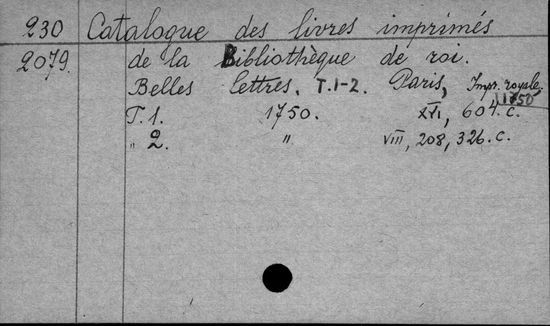 230 Catalogue des livres imprimés
2079. de la Bibliothèque de roi.
Belles lettres. T.1-2. Paris, Impr. royale.
1750
T.1. 1750. XVI, 604. c.
" 2. " VIII, 208, 326. c.